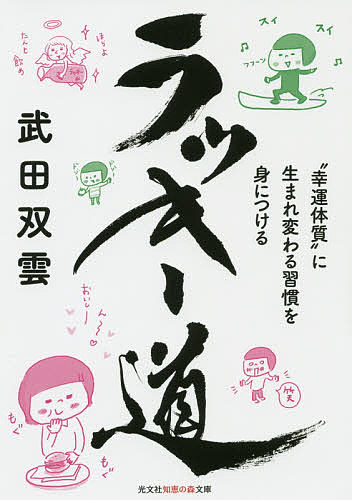 ラッキー道
武田双雲
"幸運体質"に
生まれ変わる習慣を
身につける
ほらよ
たんと
飲め
スイ
スイ
フフーン
おいしー
ん〜
もぐ
もぐ
笑
光文社知恵の森文庫